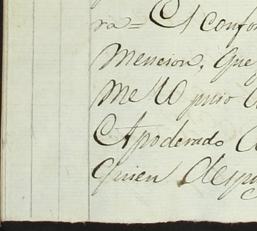 ra= El confor
Mencion, que
Me lo puso
Apoderado
Quien Despu